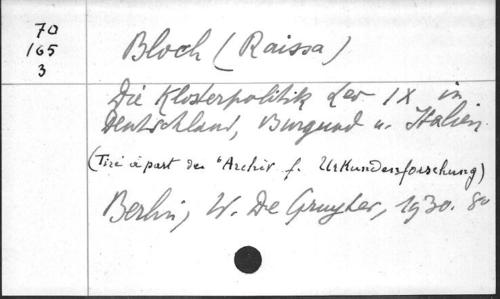 70
165
3
Bloch (Raissa)
Die Klosterpolitik der IX in
Deutschland, Burgund u. Italien.
(Tiré à part de "Archiv f. Urkundenforschung)
Berlin, W. De Gruyter, 1930. 8o